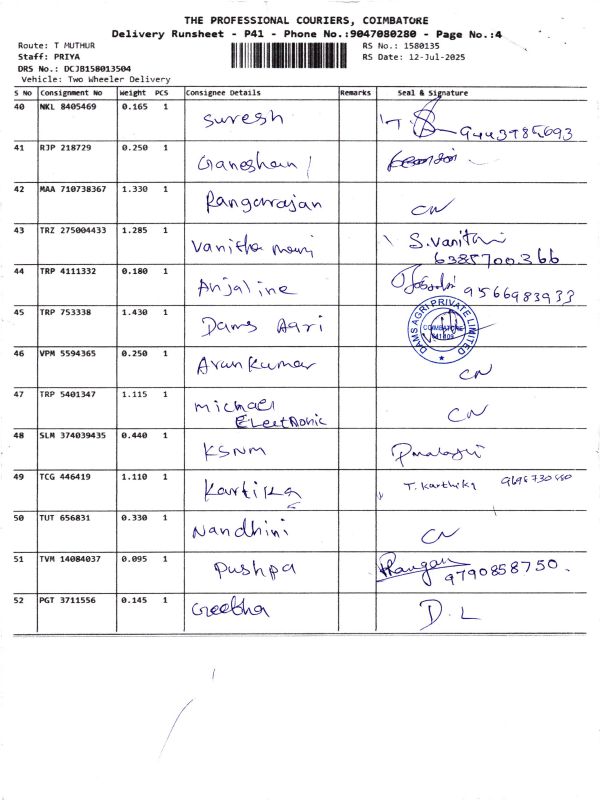 THE PROFESSIONAL COURIERS, COIMBATORE
Delivery Runsheet - P41 - Phone No.:9047080280 - Page No.:4
Route: T MUTHUR RS No.: 1580135
Staff: PRIYA RS Date: 12-Jul-2025
DRS No.: DCJB158013504
Vehicle: Two Wheeler Delivery
S No Consignment No Weight PCS Consignee Details Remarks Seal & Signature
40 NKL 8405469 0.165 1 Suresh T.
41 RJP 218729 0.250 1 Ganeshan
42 MAA 710738367 1.330 1 Rangarajan CN
43 TRZ 275004433 1.285 1 Vanitha mani S.Vanitha
6385700366
44 TRP 4111332 0.180 1 Anjaline 9566983933
45 TRP 753338 1.430 1 Dams Agri
DAMS AGRI PRIVATE LIMITED
COIMBATORE
46 VPM 5594365 0.250 1 Arun Kumar CN
47 TRP 5401347 1.115 1 Michael
Electronic CN
48 SLM 374039435 0.440 1 KSNM
49 TCG 446419 1.110 1 Kartika T. Karthika
50 TUT 656831 0.330 1 Nandhini CN
51 TVM 14084037 0.095 1 Pushpa Thangam
9790858750.
52 PGT 3711556 0.145 1 Geetha D.L